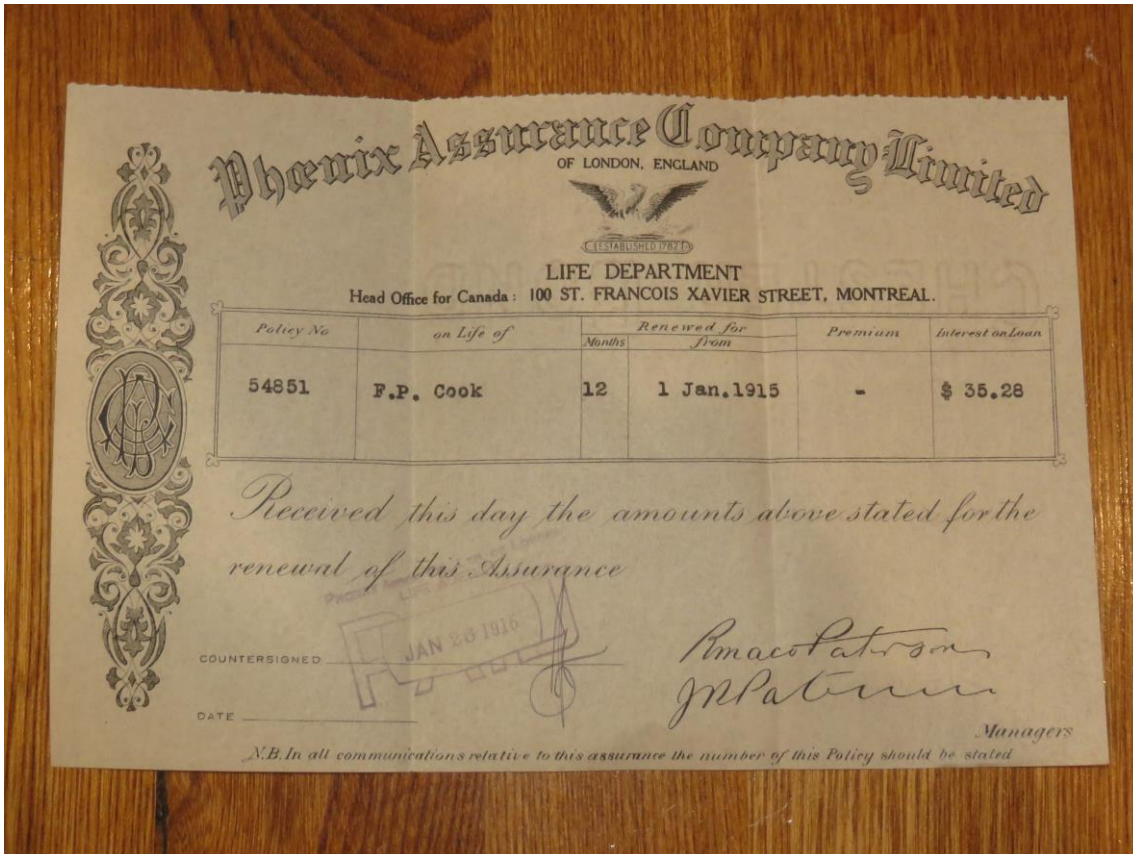 Phœnix Assurance Company Limited
OF LONDON, ENGLAND
ESTABLISHED 1782
LIFE DEPARTMENT
Head Office for Canada: 100 ST. FRANCOIS XAVIER STREET, MONTREAL.
Policy No on Life of Renewed for Premium Interest on Loan
Months from
54851 F.P. Cook 12 1 Jan.1915 - $ 35.28
Received this day the amounts above stated for the
renewal of this Assurance
JAN 26 1915
COUNTERSIGNED
DATE
Managers
N.B. In all communications relative to this assurance the number of this Policy should be stated